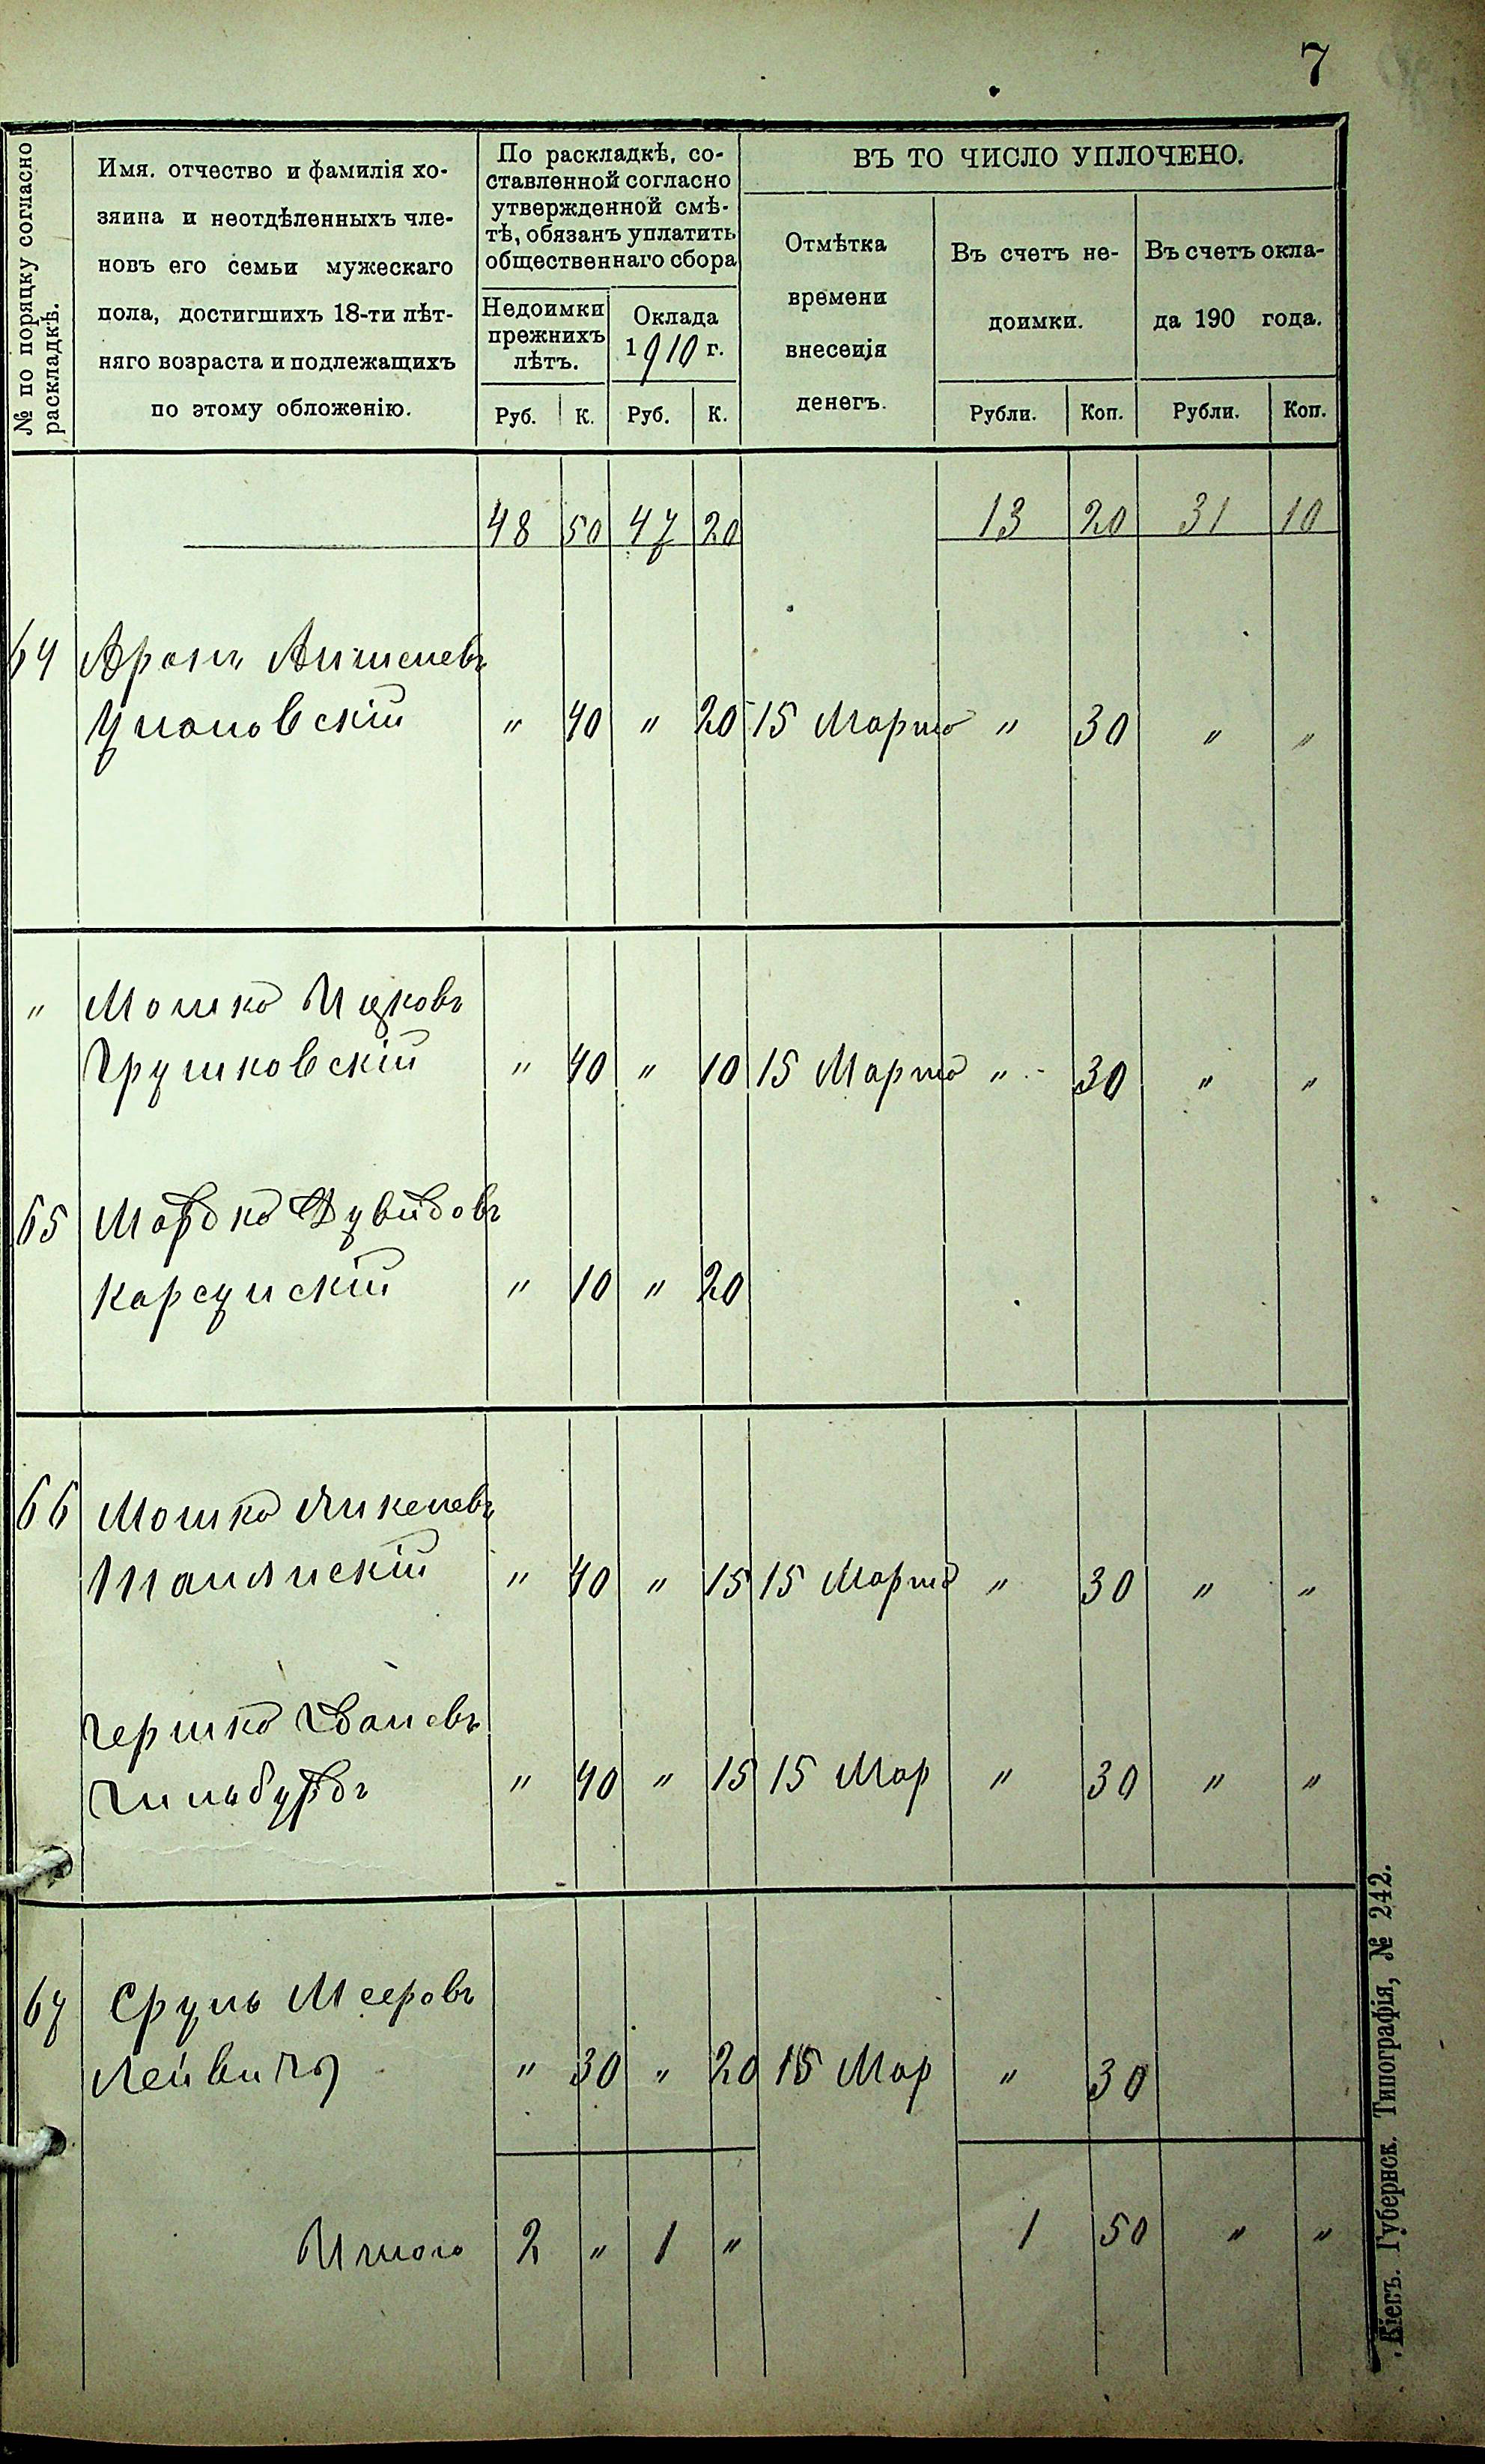 7
№ по порядку согласно раскладкѣ.
Имя, отчество и фамилія хо-
зяина и неотдѣленныхъ чле-
новъ его семьи мужескаго
пола, достигшихъ 18-ти лѣт-
няго возраста и подлежащихъ
по этому обложенію.
По раскладкѣ, со-
ставленной согласно
утвержденной смѣ-
тѣ, обязанъ уплатить
общественнаго сбора
Недоимки
прежнихъ
лѣтъ.
Оклада
1910 г.
Руб. К. Руб. К.
ВЪ ТО ЧИСЛО УПЛОЧЕНО.
Отмѣтка
времени
внесенія
денегъ.
Въ счетъ не-
доимки.
Въ счетъ окла-
да 190 года.
Рубли. Коп. Рубли. Коп.
48 50 47 20 13 20 31 10
64 Аронъ Аншелевъ
" 40 " 20 15 Марта " 30 " "
" Мошко Ицковъ
Грушковскій " 40 " 10 15 Марта " 30 " "
65 Мордко Дувидовъ
Карсунскій " 10 " 20
66 Мошко Янкелевъ
Тальянскій " 40 " 15 15 Марта " 30 " "
Гершко
Гильбурдъ " 40 " 15 15 Мар " 30 " "
67 Сруль Мееровъ
" 30 " 20 15 Мар " 30
Итого 2 " 1 " 1 50 " "
Кіевъ. Губернск. Типографія, № 242.